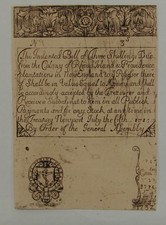 3
This Indented Bill of Three Shillings Due
from the Colony of Rhode Island & Providence
Plantations in New England to the Possessor thereof
Shall be in Value Equal to Money and shall
be accordingly accepted by the Treasurer and
Receivers Subordinate to him in all Publick
Payments and for any Stock at any time in
the Treasury Newport July the fifth
By Order of the General Assembly